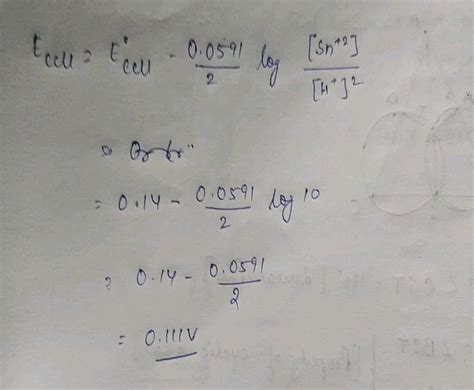 E_cell = E°_cell - 0.0591/2 log [Sn⁺²]/[H⁺]²
so
= 0.14 - 0.0591/2 log 10
= 0.14 - 0.0591/2
= 0.111V